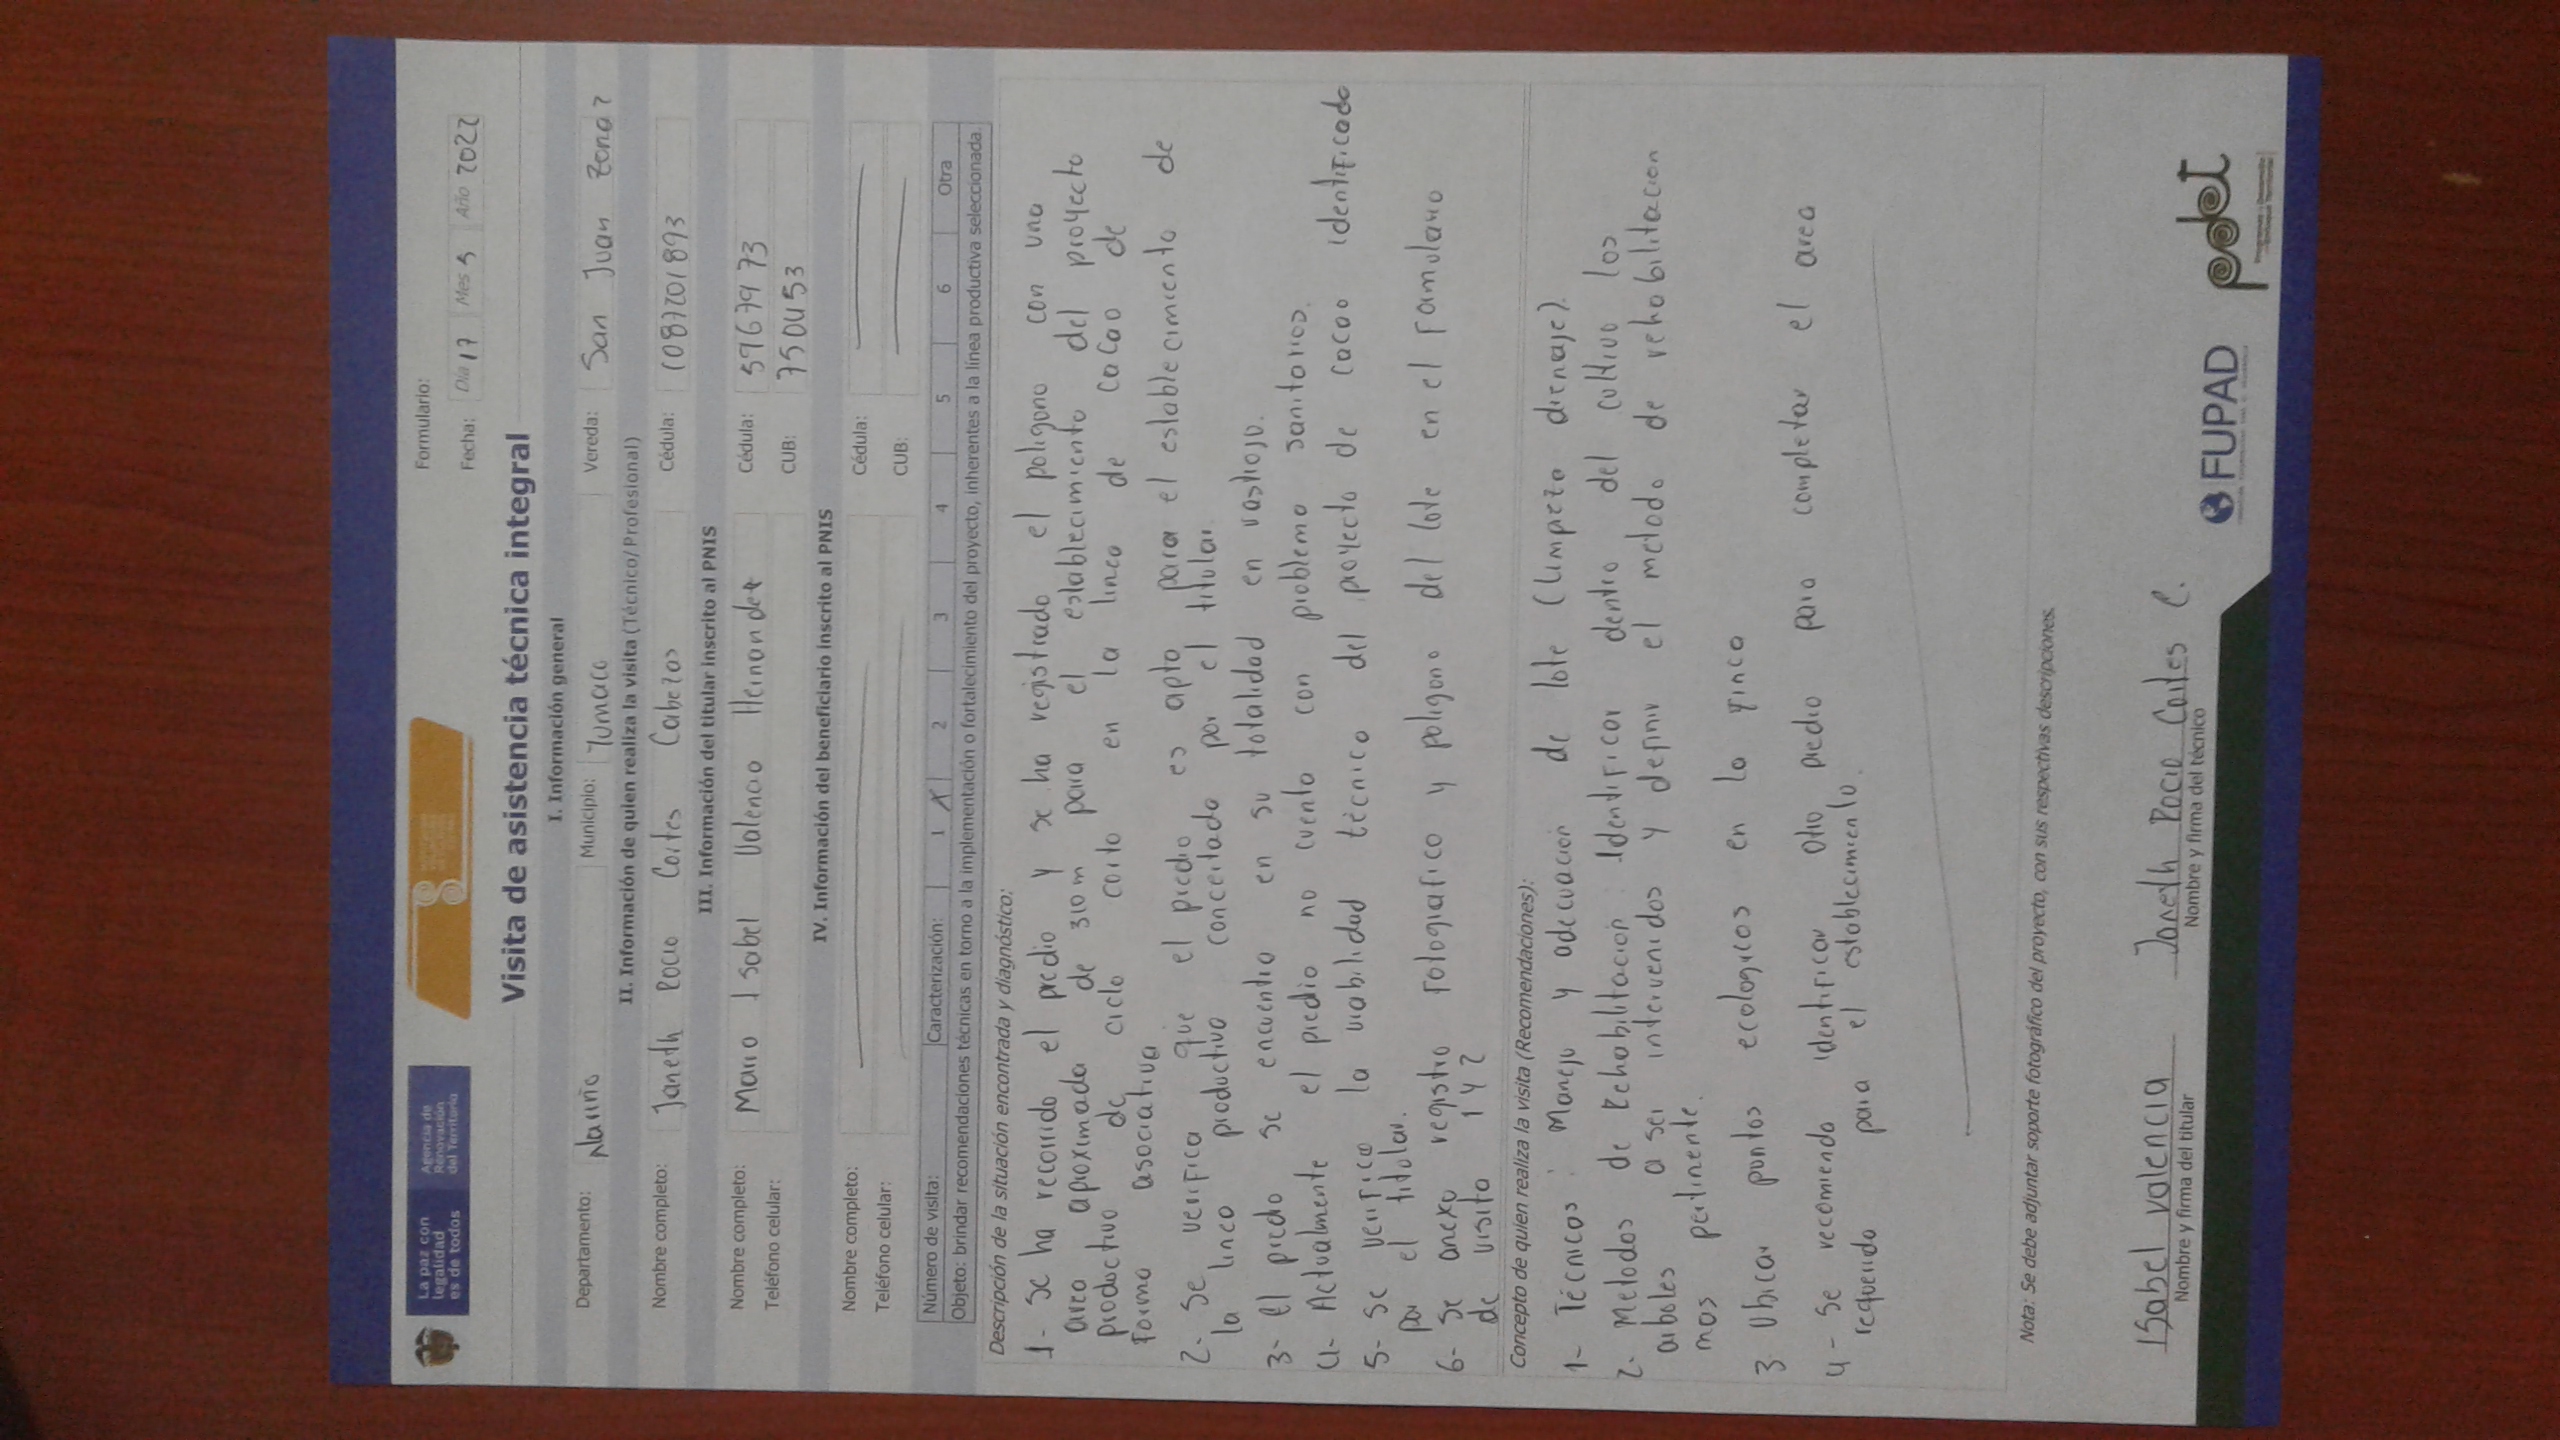 La paz con
legalidad
es de todos
Agencia de
Renovación
del Territorio
Formulario:
Fecha: Día 17 Mes 5 Año 2022
Visita de asistencia técnica integral
I. Información general
Departamento: Nariño Municipio: Tumaco Vereda: San Juan Zona 2
II. Información de quien realiza la visita (Técnico/Profesional)
Nombre completo: Janeth Rocio Cortes Cabezas Cédula: 1087201893
III. Información del titular inscrito al PNIS
Nombre completo: Maria Isabel Valencia Hernandez Cédula: 59679973
Teléfono celular: CUB: 7500453
IV. Información del beneficiario inscrito al PNIS
Nombre completo: Cédula:
Teléfono celular: CUB:
Número de visita: Caracterización: 1 X 2 3 4 5 6 Otra
Objeto: brindar recomendaciones técnicas en torno a la implementación o fortalecimiento del proyecto, inherentes a la línea productiva seleccionada.
Descripción de la situación encontrada y diagnóstico:
1- se ha recorrido el predio y se ha registrado el poligono con una
area aproximada de 310 m para el establecimiento del proyecto
productivo de ciclo corto en la linea de cacao de
forma asociativa
2- se verifica que el predio es apto para el establecimiento de
la linea productiva concertada por el titular.
3- el predio se encuentra en su totalidad en rastrojo.
4- Actualmente el predio no cuenta con problema sanitarios.
5- se verifica la viabilidad técnica del proyecto de cacao identificado
por el titular.
6- se anexa registro fotografico y poligono del lote en el formulario
de visita 1 y 2
Concepto de quien realiza la visita (Recomendaciones):
1- Técnicos: Manejo y adecuacion de lote (limpeza drenaje).
2- Metodos de Rehabilitacion: identificar dentro del cultivo los
arboles a ser intervenidos y definir el metodo de rehabilitacion
mas pertinente.
3- Ubicar puntos ecologicos en la finca
4- se recomienda identificar otro predio para completar el area
requerida para el establecimiento.
Nota: Se debe adjuntar soporte fotográfico del proyecto, con sus respectivas descripciones.
ISabel valencia Janeth Rocio Cortes C.
Nombre y firma del titular Nombre y firma del técnico
FUPAD
pdet